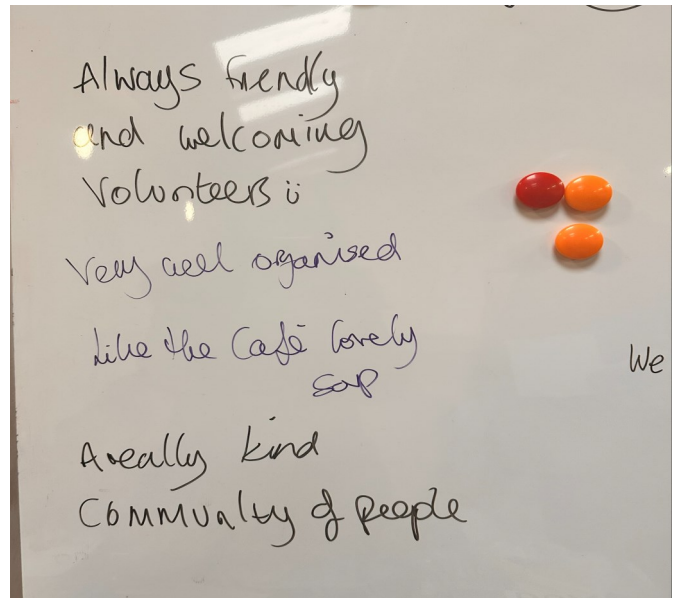 Always friendly
and welcoming
Volunteers ü
Very well organised
Like the Café lovely
soup
A really kind
Community of people
We